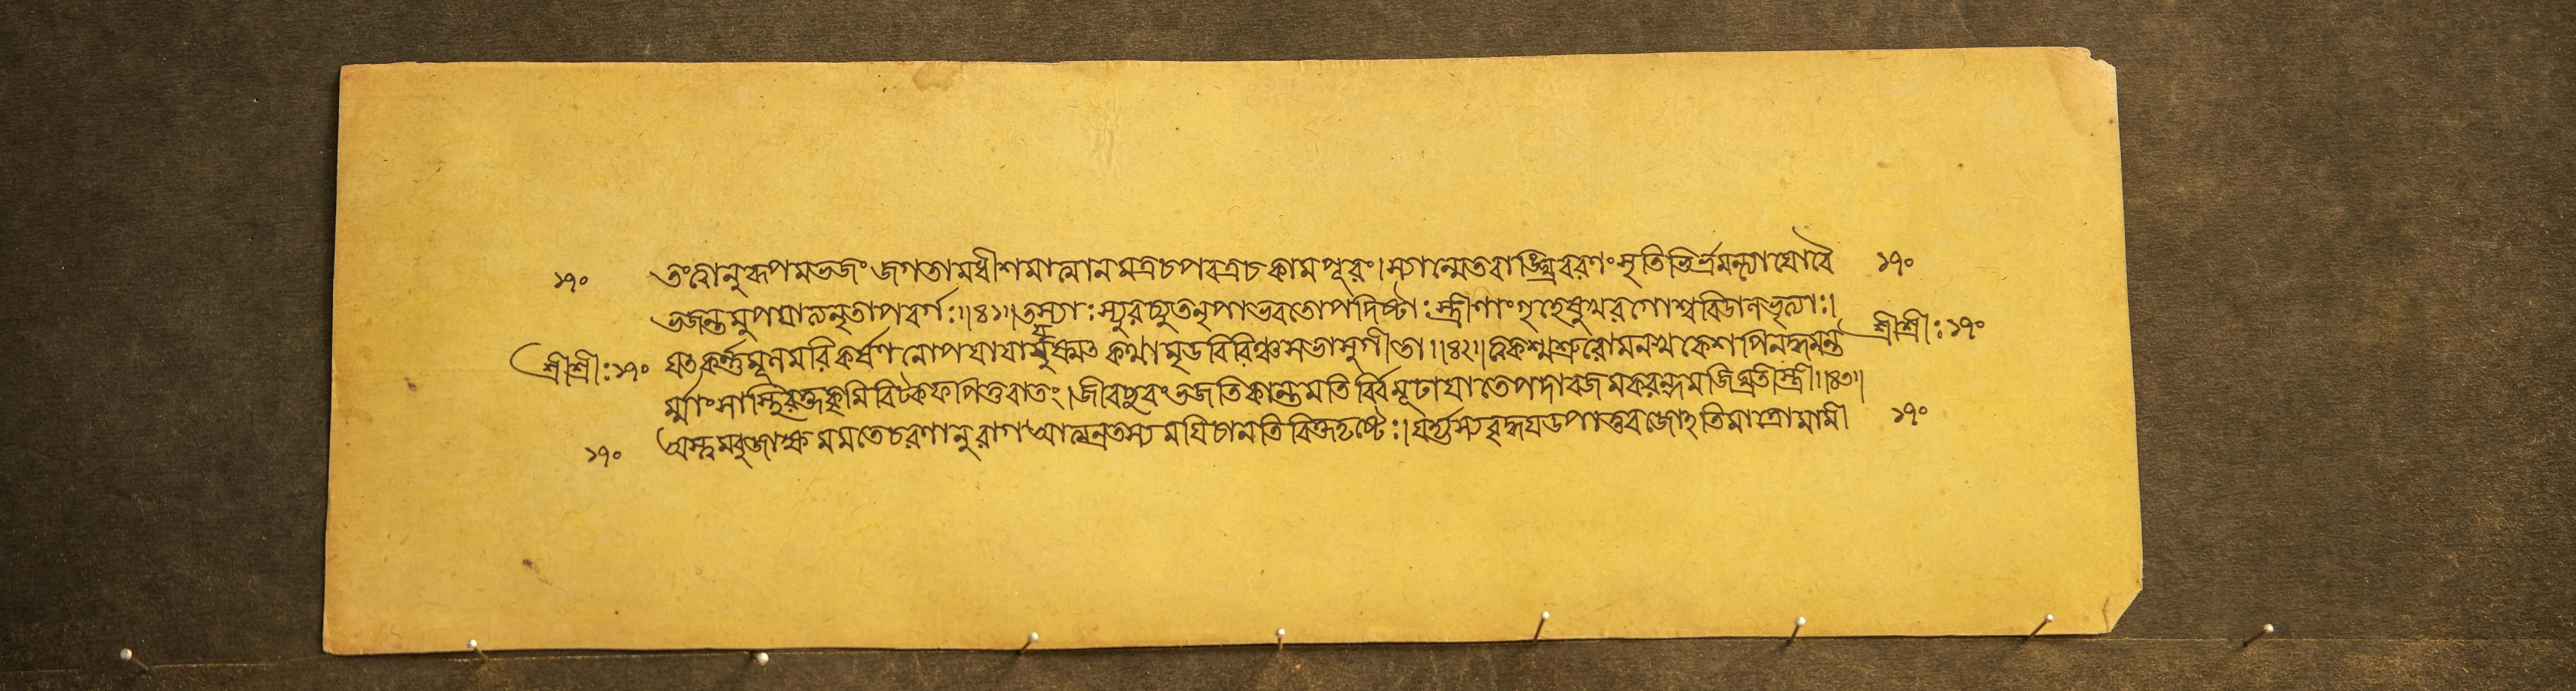 ১৭০ তংত্বানুরূপমভজং জগতামধীশমাত্মানমত্রচপরত্রচকামপূরং।স্যান্মেতবাঙ্ঘ্রিররণংসৃতিভির্ভ্রমন্ত্যাযোবৈ ১৭০
ভজন্তমুপযাত্যনৃতাপবর্গঃ॥৪১॥তস্যাঃস্যুরচ্যুতনৃপাভবতোপদিষ্টাঃস্ত্রীণাংগৃহেষুখরগোশ্ববিডালভৃত্যাঃ। শ্রীশ্রীঃ১৭০
শ্রীশ্রীঃ১৭০ যৎকর্ণমূলমরিকর্ষণনোপযাযাদ্যুষ্মৎকথামৃডবিরিঞ্চসভাসুগীতা॥৪২॥ত্বকশ্মশ্রুরোমনখকেশপিনদ্ধমন্ত
র্মাংসাস্থিরক্তকৃমিবিটকফপিত্তবাতং।জীবচ্ছবংভজতিকান্তমতির্বিমূঢাযাতেপদাব্জমকরন্দমজিঘ্রতীস্ত্রী॥৪৩॥
১৭০ অস্ত্বম্বুজাক্ষমমতেচরণানুরাগআত্মন্রতস্যমযিচানতিরিক্তদৃষ্টেঃ।যর্হ্যস্যবৃদ্ধযউপাত্তরজোঽতিমাত্রোমামী ১৭০